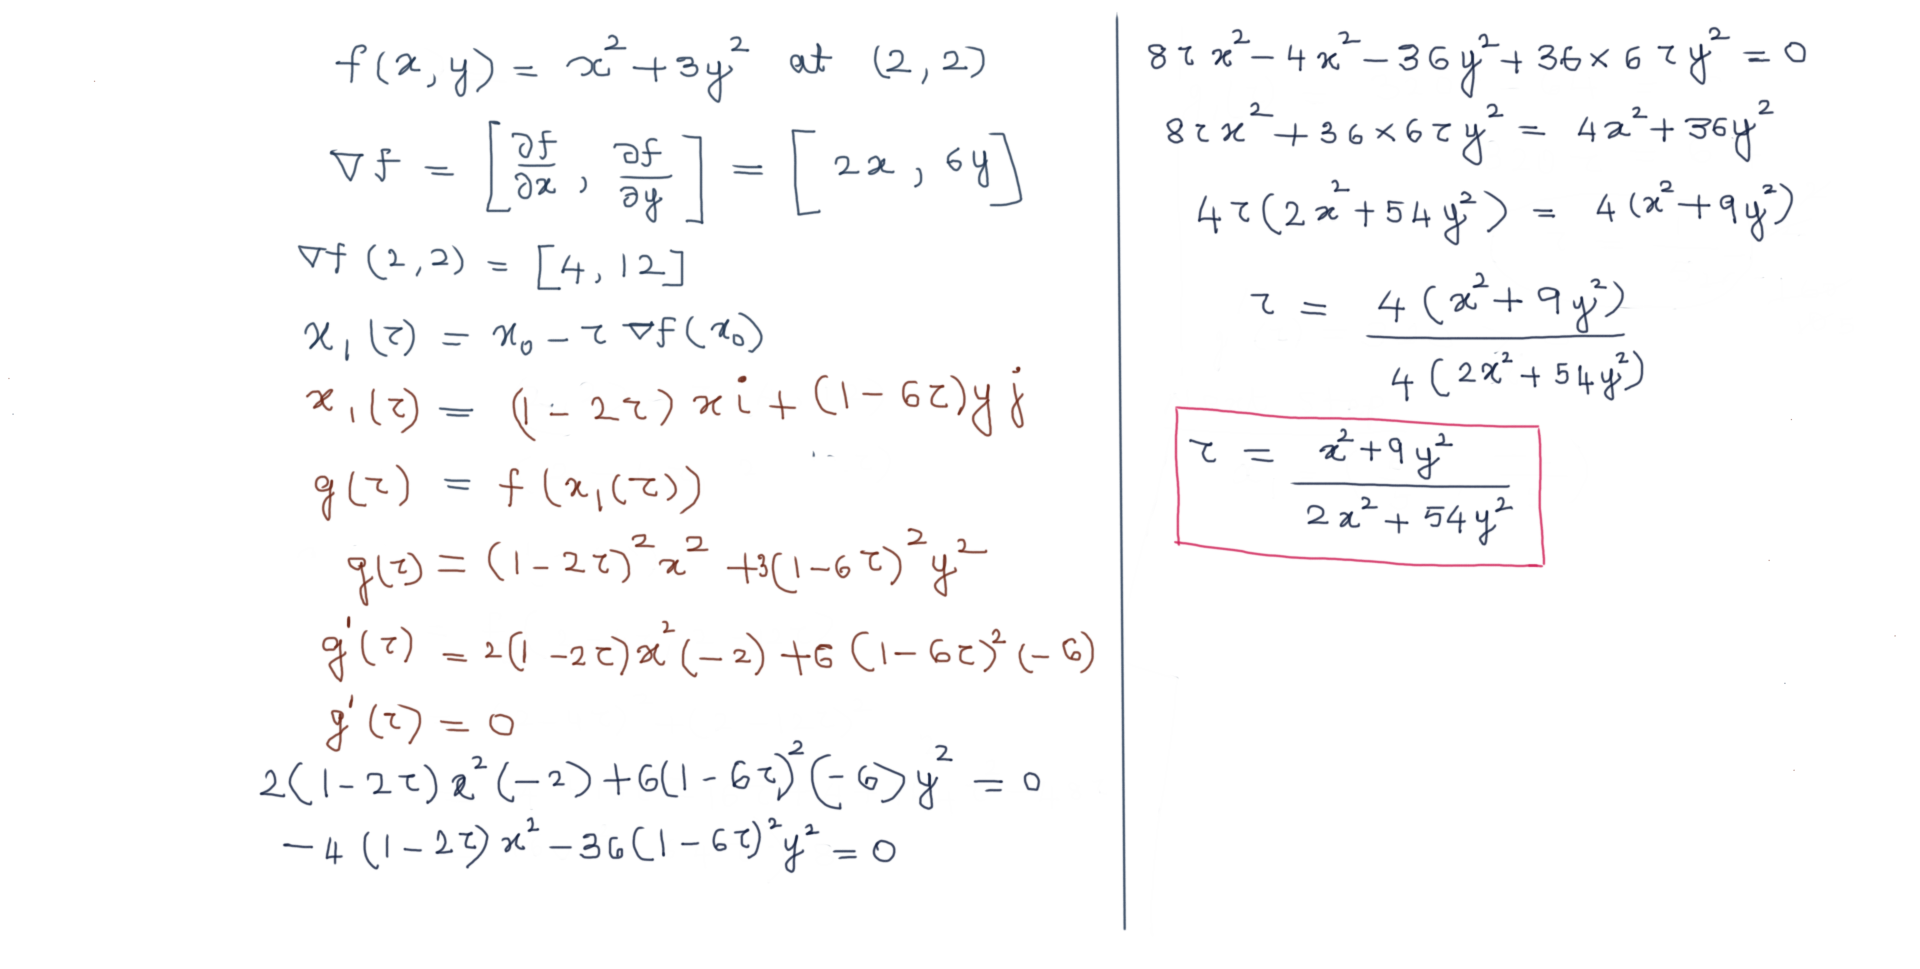 f(x,y) = x² + 3y² at (2,2)
∇f = [∂f/∂x, ∂f/∂y] = [2x, 6y]
∇f(2,2) = [4, 12]
x₁(τ) = x₀ − τ ∇f(x₀)
x₁(τ) = (1 − 2τ) x i + (1 − 6τ) y j
g(τ) = f(x₁(τ))
g(τ) = (1 − 2τ)² x² + 3(1 − 6τ)² y²
g'(τ) = 2(1 − 2τ) x² (−2) + 6 (1 − 6τ)² (−6)
g'(τ) = 0
2(1 − 2τ) x² (−2) + 6(1 − 6τ)² (−6) y² = 0
−4 (1 − 2τ) x² − 36(1 − 6τ)² y² = 0
8τx² − 4x² − 36y² + 36 × 6τy² = 0
8τx² + 36 × 6τy² = 4x² + 36y²
4τ(2x² + 54y²) = 4(x² + 9y²)
τ = 4(x² + 9y²) / 4(2x² + 54y²)
τ = x² + 9y² / 2x² + 54y²